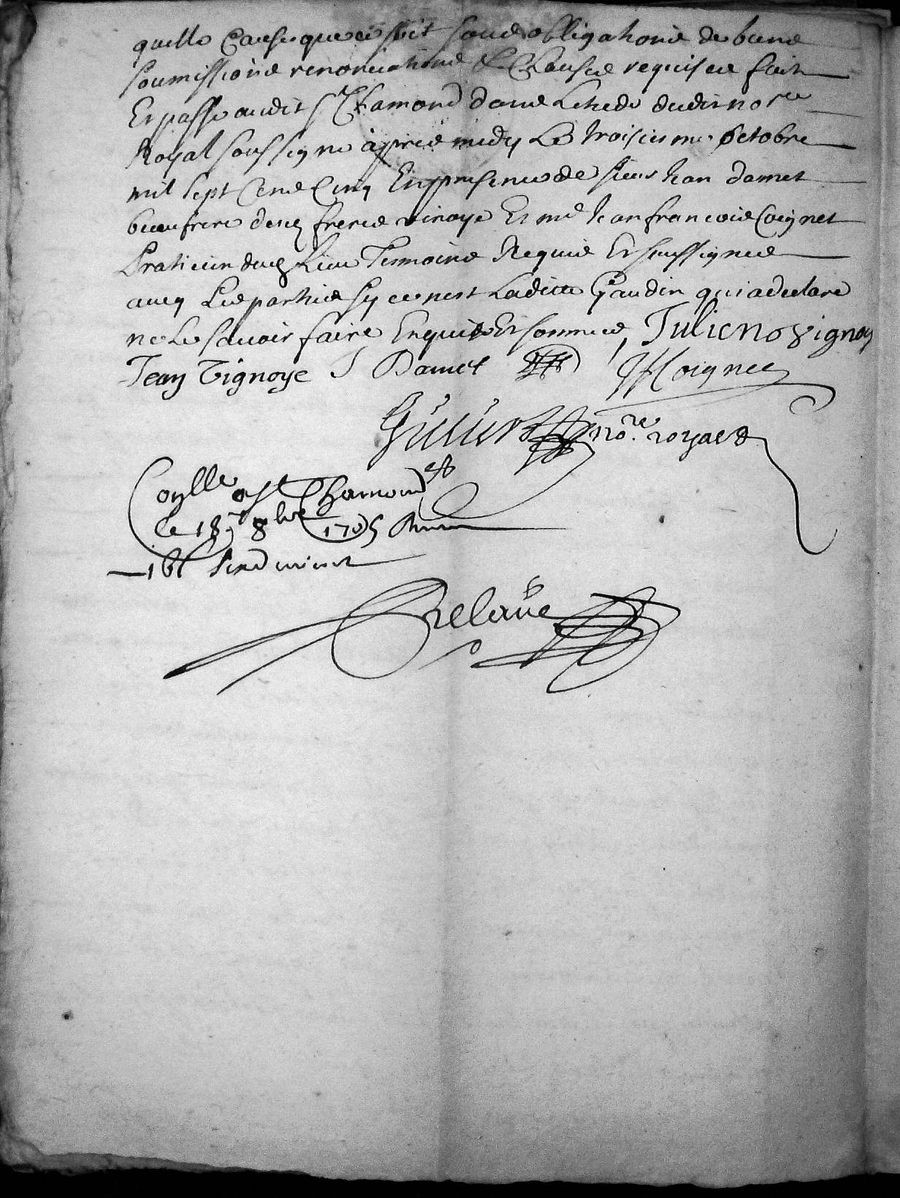 quelle cause que ce soit soubs obligations de biens
soumissions renonciations & clauses requises fait
Et passé audit St Chamond dans l'etude dudit nore
Royal soussigné apres midy le troisieme octobre
mil sept cens cinq En presence de sieur Jean damet
beaufrere desd freres vinoye Et me Jean francois Coignet
praticien dud lieu Temoins Requis Et soussignes
avecq les parties sy ce n'est laditte Gaudin qui a declaré
ne le savoir faire Enquise Et sommée, Julien vignoy
Jean Vignoye J Damet JfCoignet
nore. royal
Collé a St Chamond
le 18e 8bre 1705